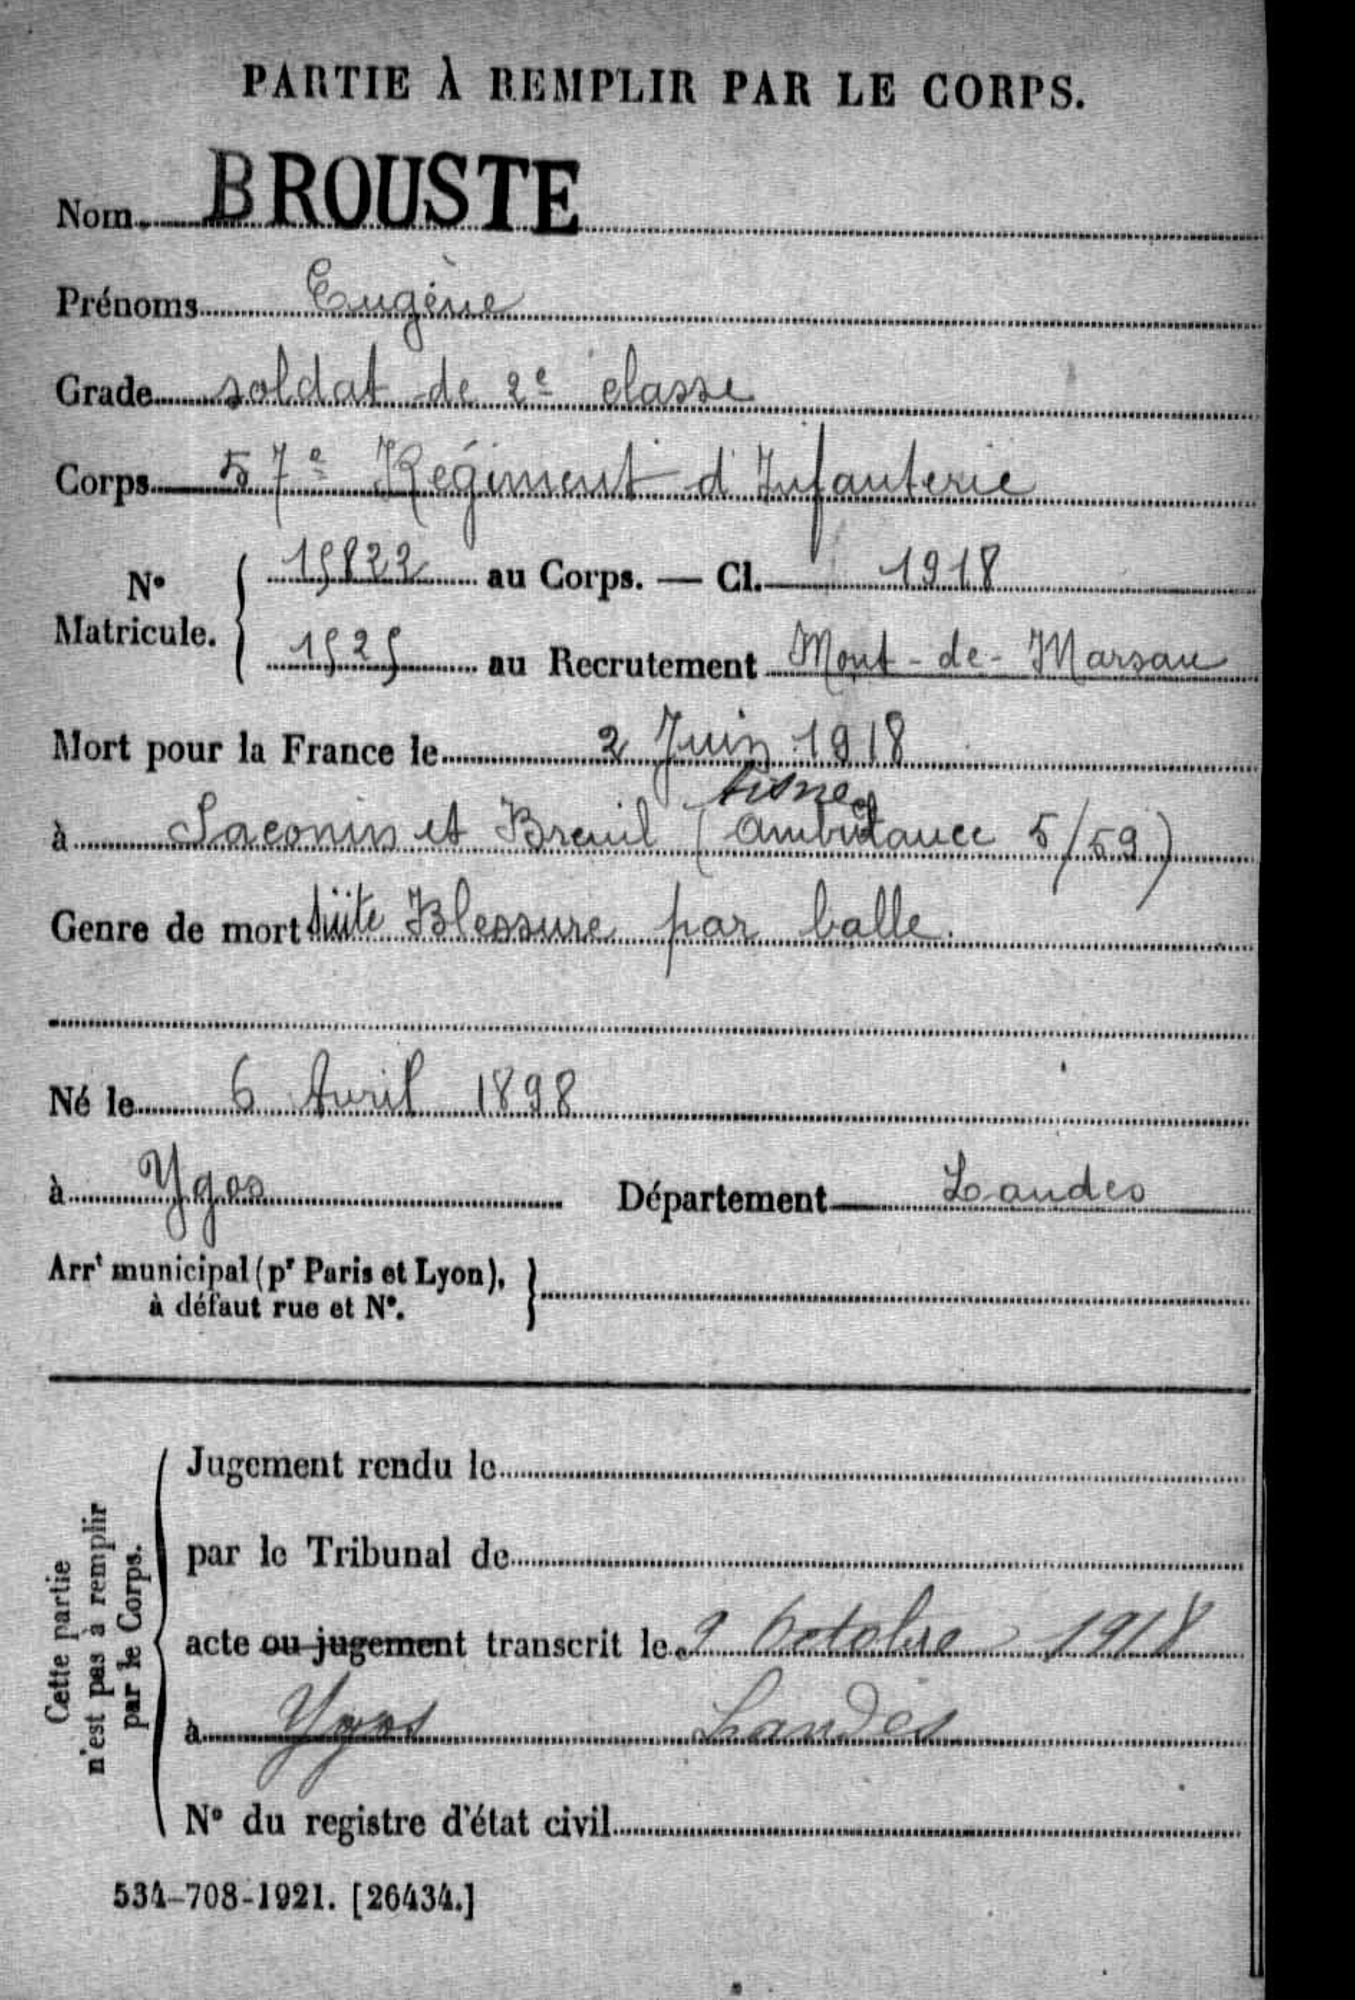 PARTIE À REMPLIR PAR LE CORPS.
Nom BROUSTE
Prénoms Eugène
Grade soldat de 2e classe
Corps 57e Régiment d'Infanterie
N° Matricule. { 15822 au Corps. — Cl. 1918
1525 au Recrutement Mont-de-Marsan
Mort pour la France le 2 Juin 1918
Aisne
à Saconin et Breuil (Ambulance 5/59)
Genre de mort suite Blessure par balle.
Né le 6 Avril 1898
à Ygos Département Landes
Arrt municipal (pr Paris et Lyon),
à défaut rue et N°.
Cette partie
n'est pas à remplir
par le Corps.
Jugement rendu le
par le Tribunal de
acte ou jugement transcrit le 9 Octobre 1918
à Ygos Landes
N° du registre d'état civil
534-708-1921. [26434.]